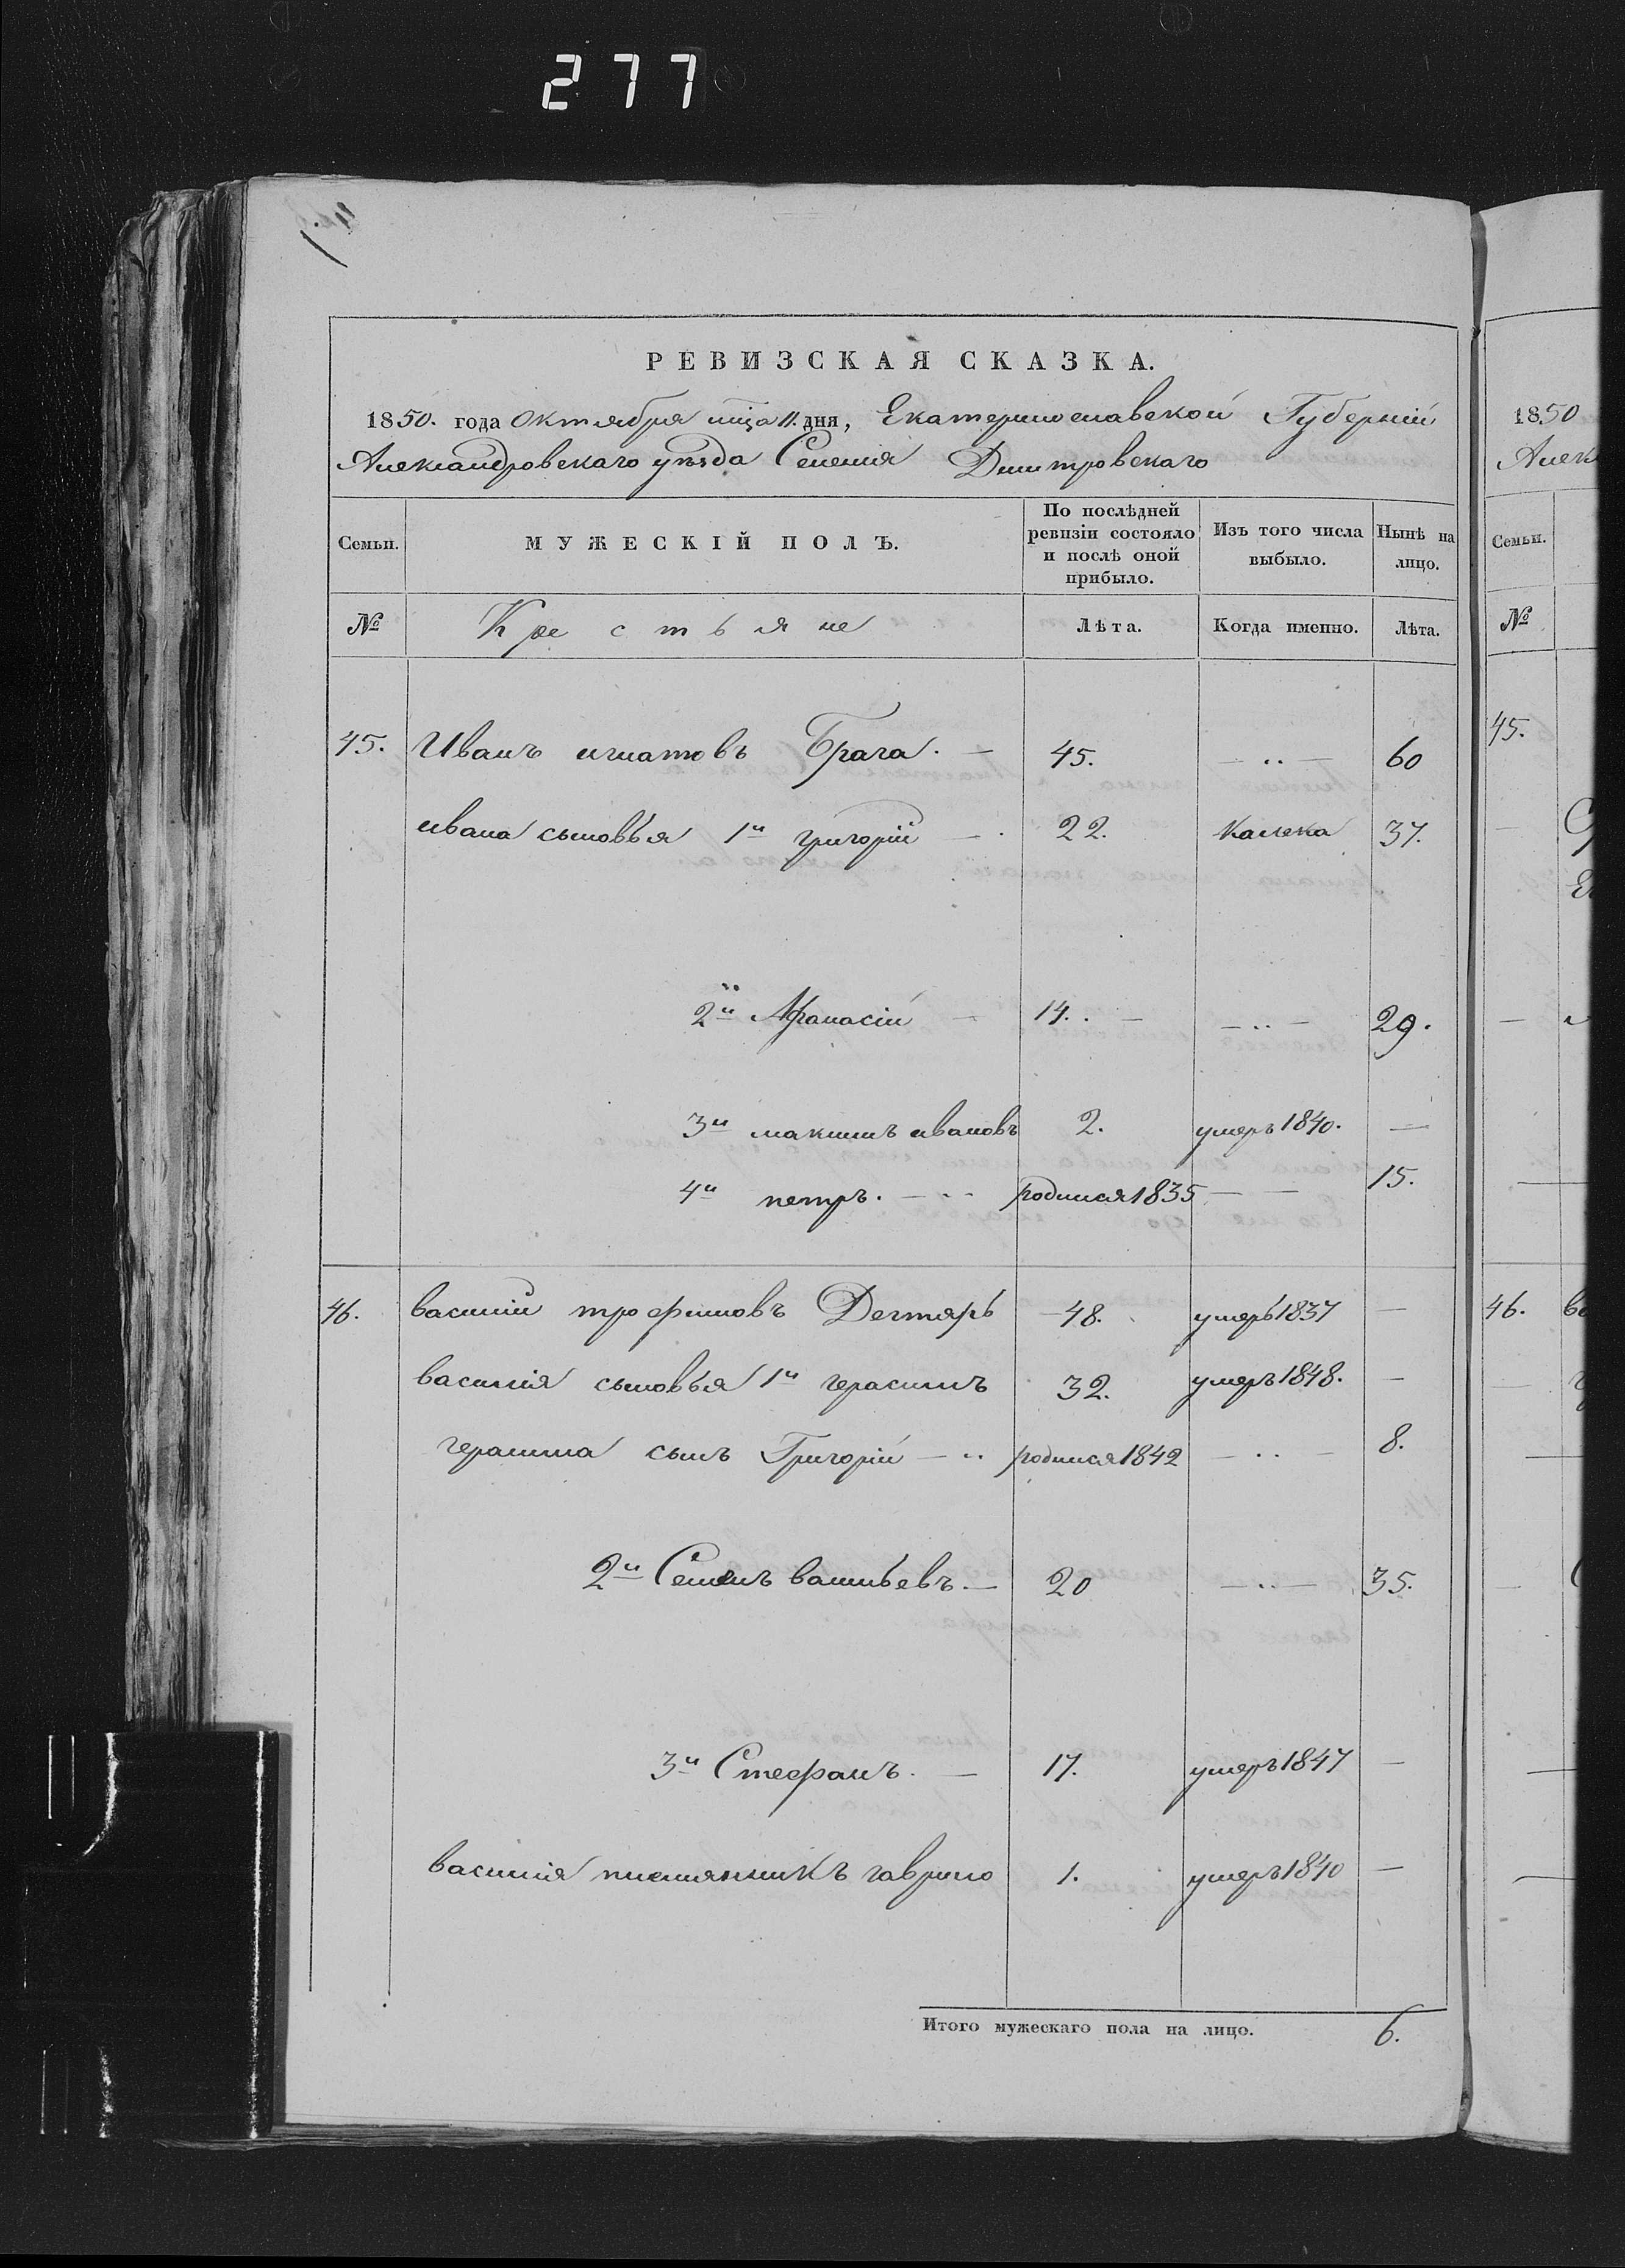 277
РЕВИЗСКАЯ СКАЗКА.
1850. года Октября мца 11. дня, Екатеринославской Губерніи
Александровскаго уѣзда Селенія Дмитровскаго
Семьи. МУЖЕСКІЙ ПОЛЪ. По послѣдней ревизіи состояло и послѣ оной прибыло. Изъ того числа выбыло. Нынѣ на лицо.
№ Крестьяне Лѣта. Когда именно. Лѣта.
45. Иванъ игнатовъ Брага. — 45. — .. — 60
ивана сыновья 1й григорій — . 22. калека 37.
2й Афанасій — 14. . — — .. — 29.
3й максимъ ивановъ 2. умеръ 1840. —
4й петръ. — .. родился 1835 — — 15.
46. василій трофимовъ Дегтярь — 48. умеръ 1837 —
василія сыновья 1й герасимъ 32. умеръ 1848. —
герасима сынъ Григорій — .. родился 1842 — .. — 8.
2й Семенъ васильевъ. — 20 — .. — 35.
3й Стефанъ. — 17. умеръ 1847 —
василія племянникъ гаврило 1. умеръ 1840 —
Итого мужескаго пола на лицо. 6.
1850
Алек
Семьи.
№
45.
46.